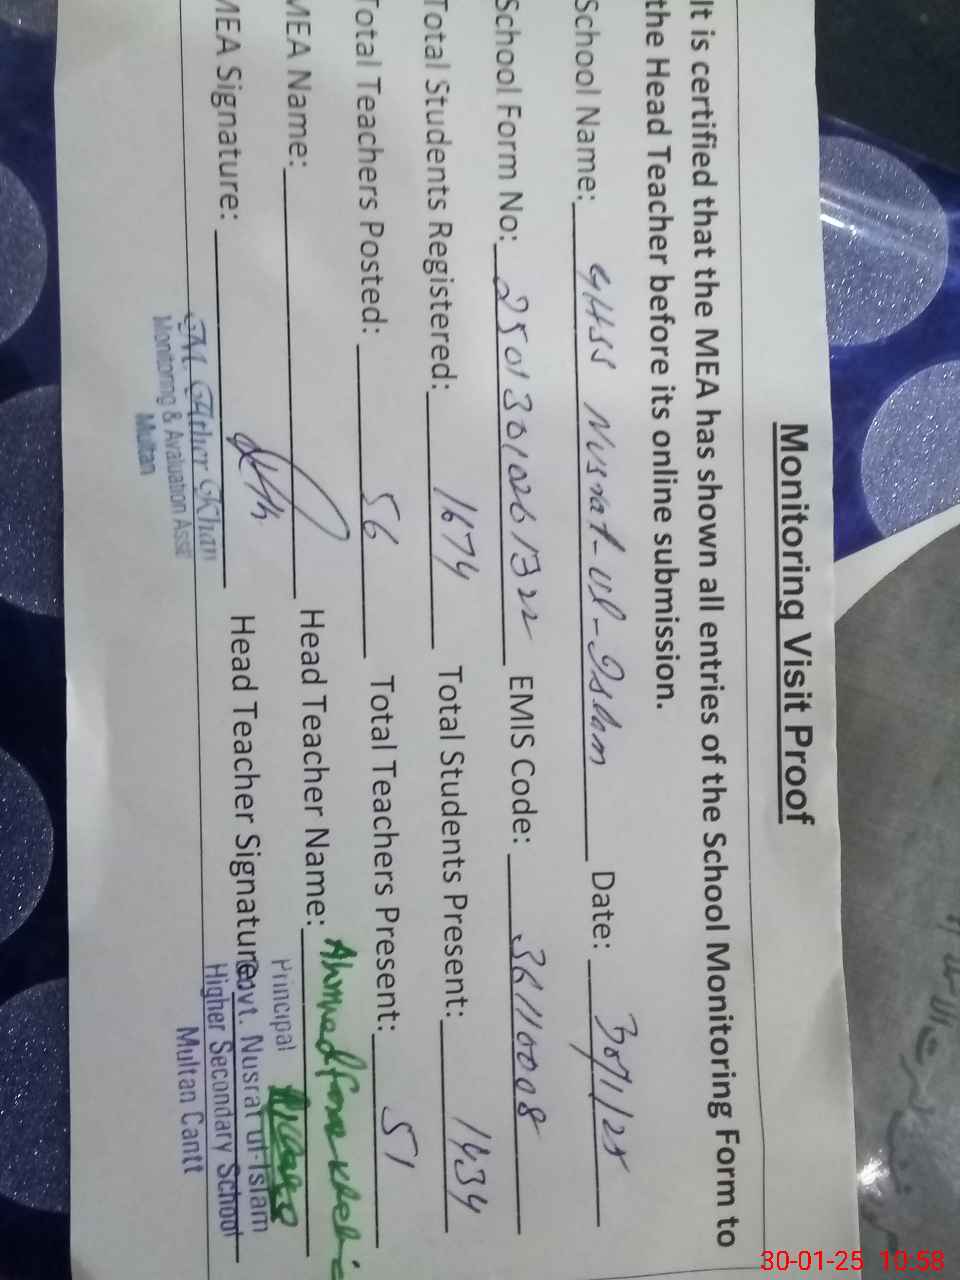 Monitoring Visit Proof
It is certified that the MEA has shown all entries of the School Monitoring Form to
the Head Teacher before its online submission.
School Name: GHSS Nusrat-ul-Islam Date: 30/1/25
School Form No: 25013010261322 EMIS Code: 36110008
Total Students Registered: 1674 Total Students Present: 1434
Total Teachers Posted: 56 Total Teachers Present: 51
MEA Name: Head Teacher Name: Ahmed
MEA Signature: Head Teacher Signature:
Khan
Monitoring & Avaluation Asst
Multan
Principal
Govt. Nusrat ul-Islam
Higher Secondary School
Multan Cantt
30-01-25 10:58